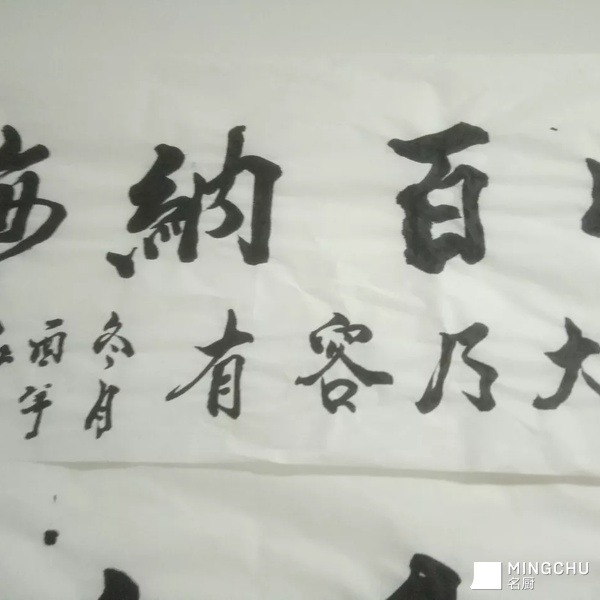 海納百
酉年
冬月
有容乃大
MINGCHU
名厨